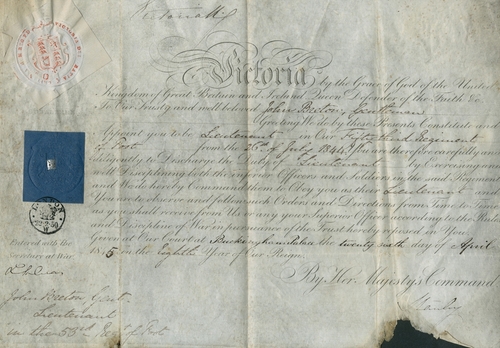 Victoria R
Victoria, by the Grace of God of the United
Kingdom of Great Britain and Ireland Queen, Defender of the Faith &c
To Our Trusty and well beloved John Beeton, Gentleman
Greeting We do by these Presents Constitute and
Appoint you to be Lieutenant in Our Fifty third Regiment
of Foot from the 26th of July 1844. You are therefore carefully and
diligently to Discharge the Duty of Lieutenant by Exercising and
well Disciplining both the inferior Officers and Soldiers in the said Regiment
and We do hereby Command them to Obey you as their Lieutenant and
You are to observe and follow such Orders and Directions from Time to Time
as you shall receive from Us or any your Superior Officer according to the Rules
and Discipline of War in pursuance of the Trust hereby reposed in You.
Given at Our Court at Buckingham House the twenty sixth day of April
1845 in the Eighth Year of Our Reign
By Her Majesty's Command
Stanley
Entered with the
Secretary at War
John Beeton Gent.
Lieutenant
in the 53rd Regt of Foot